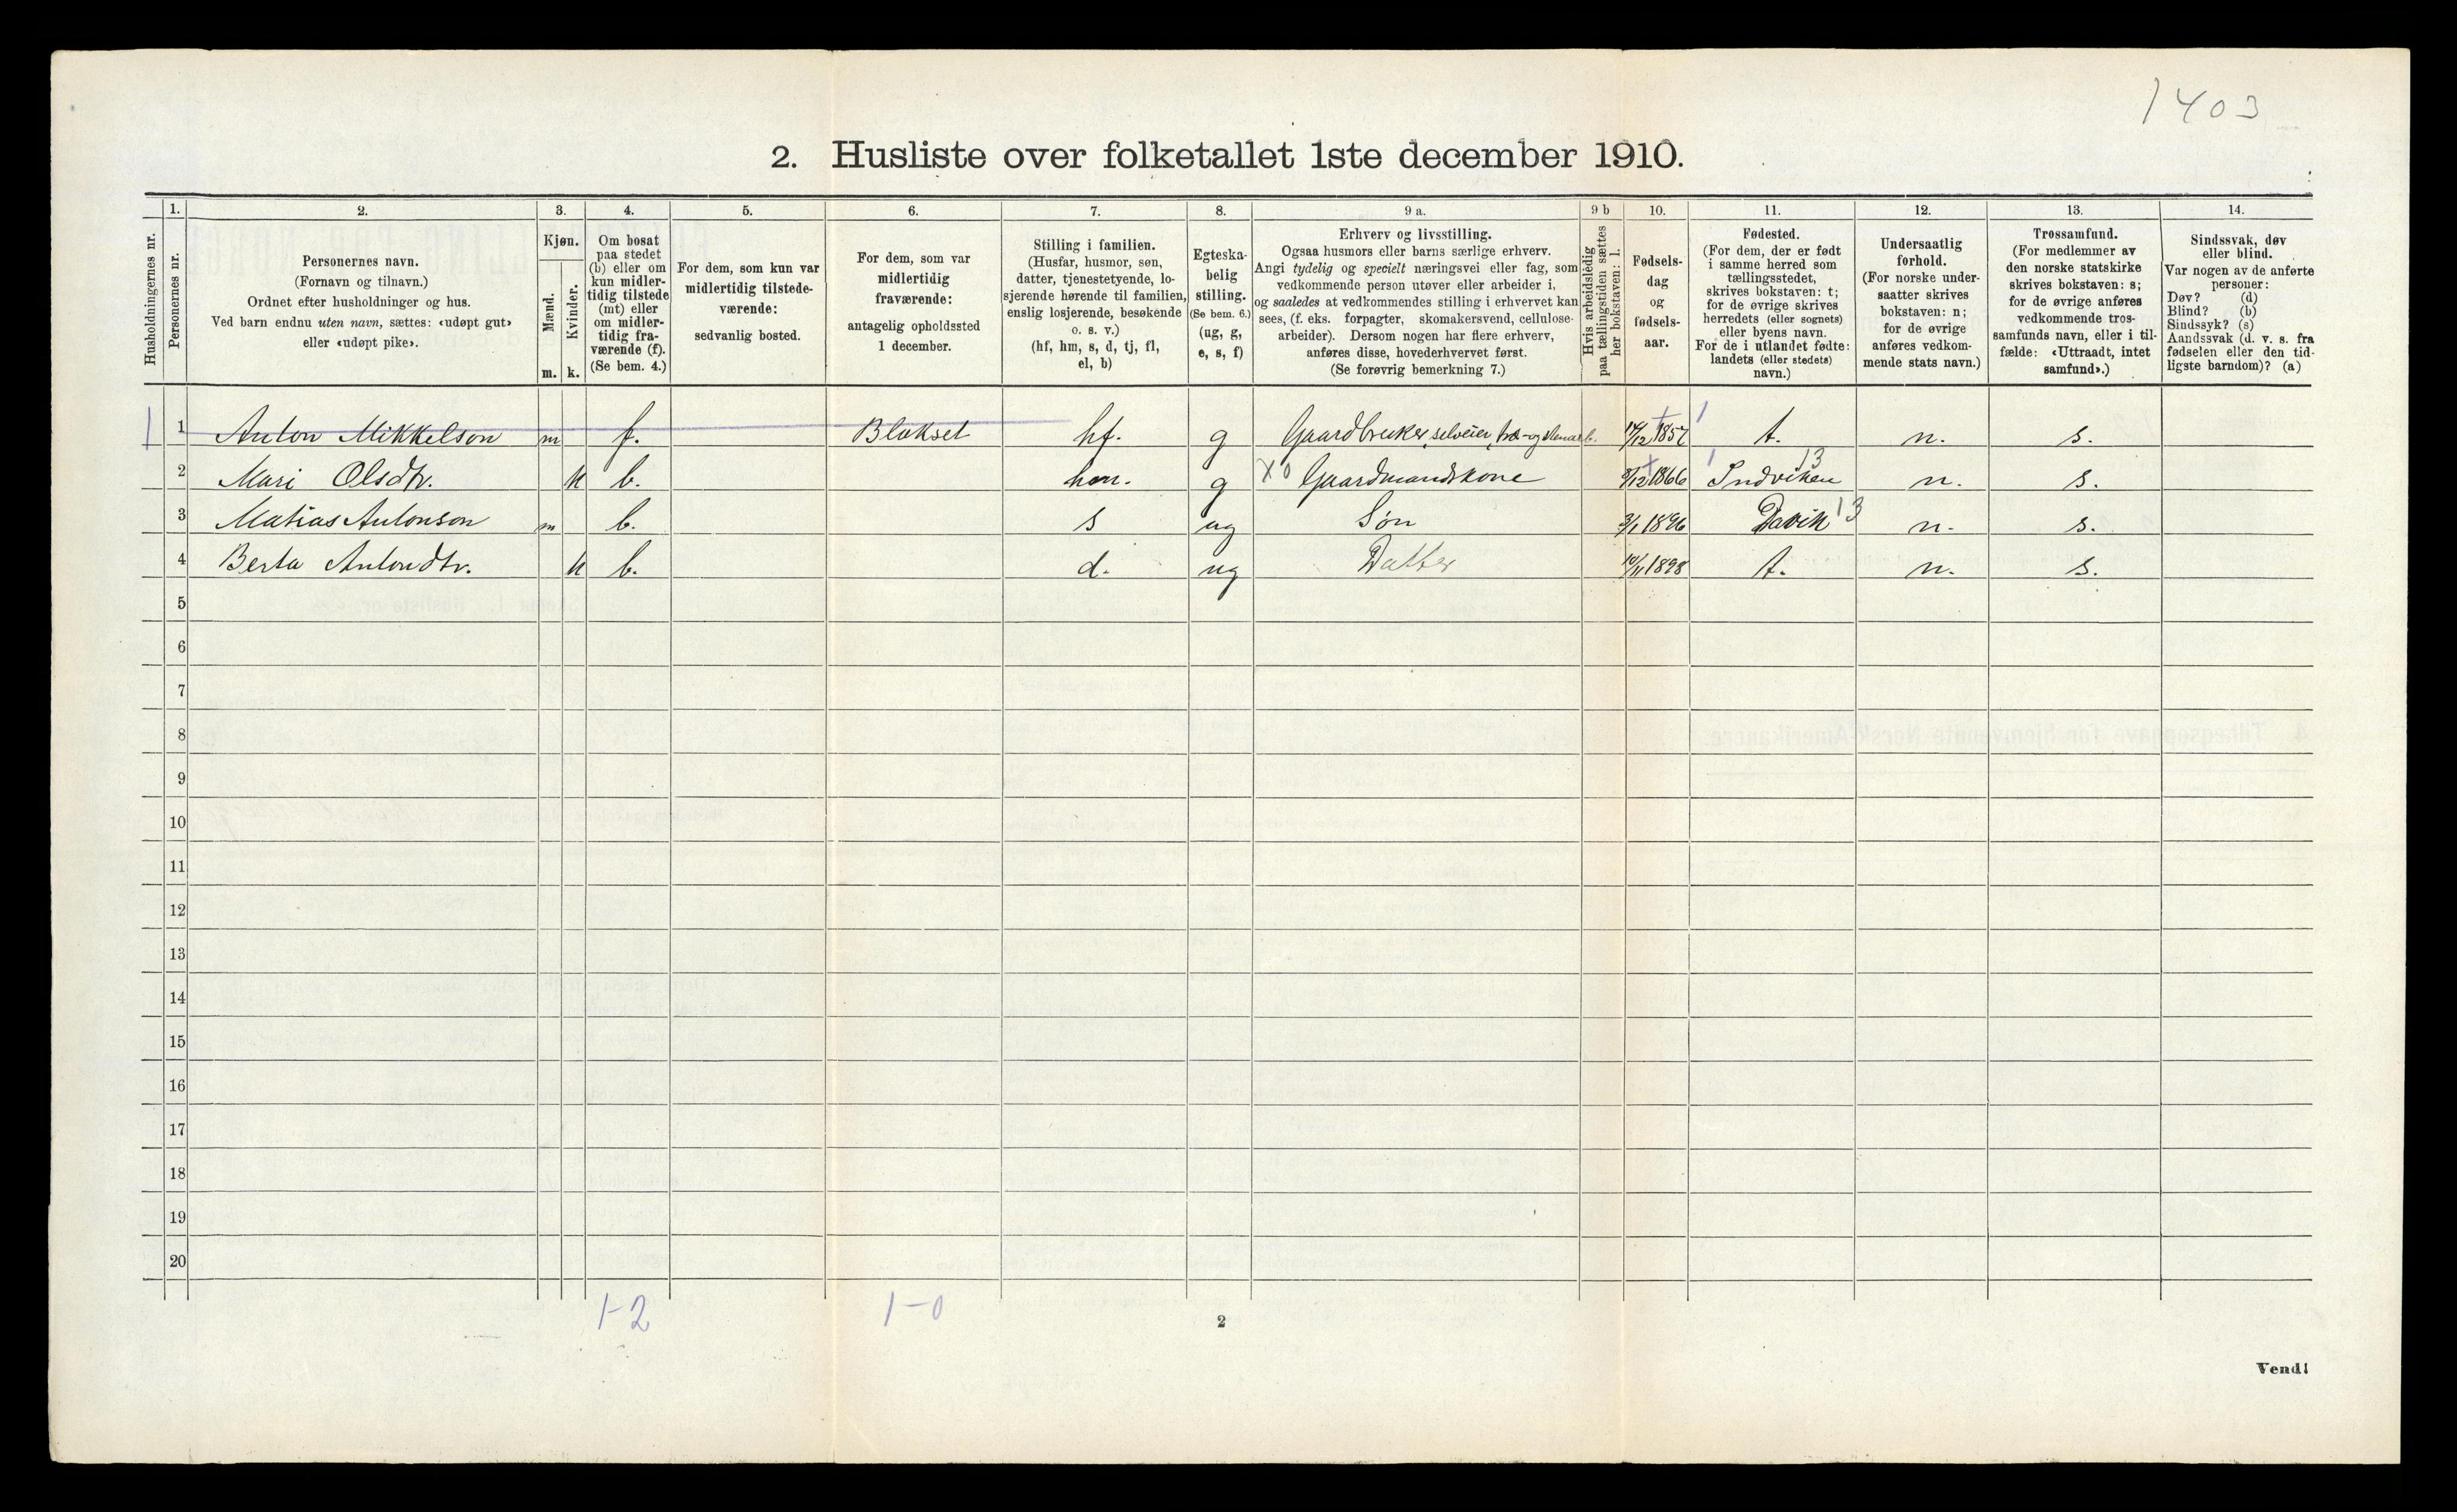 1403
2. Husliste over folketallet 1ste december 1910.
Husholdningernes nr.
1.
Personernes nr.
2.
Personernes navn.
(Fornavn og tilnavn.)
Ordnet efter husholdninger og hus.
Ved barn endnu uten navn, sættes: «udøpt gut»
eller «udøpt pike».
3.
Kjøn.
Mænd.
Kvinder.
m. k.
4.
Om bosat
paa stedet
(b) eller om
kun midler-
tidig tilstede
(mt) eller
om midler-
tidig fra-
værende (f).
(Se bem. 4.)
5.
For dem, som kun var
midlertidig tilstede-
værende:
sedvanlig bosted.
6.
For dem, som var
midlertidig
fraværende:
antagelig opholdssted
1 december.
7.
Stilling i familien.
(Husfar, husmor, søn,
datter, tjenestetyende, lo-
sjerende hørende til familien,
enslig losjerende, besøkende
o. s. v.)
(hf, hm, s, d, tj, fl,
el, b)
8.
Egteska-
belig
stilling.
(Se bem. 6.)
(ug, g,
e, s, f)
9 a.
Erhverv og livsstilling.
Ogsaa husmors eller barns særlige erhverv.
Angi tydelig og specielt næringsvei eller fag, som
vedkommende person utøver eller arbeider i,
og saaledes at vedkommendes stilling i erhvervet kan
sees, (f. eks. forpagter, skomakersvend, cellulose-
arbeider). Dersom nogen har flere erhverv,
anføres disse, hovederhvervet først.
(Se forøvrig bemerkning 7.)
9 b
Hvis arbeidsledig
paa tællingstiden sættes
her bokstaven: l.
10.
Fødsels-
dag
og
fødsels-
aar.
11.
Fødested.
(For dem, der er født
i samme herred som
tællingsstedet,
skrives bokstaven: t;
for de øvrige skrives
herredets (eller sognets)
eller byens navn.
For de i utlandet fødte:
landets (eller stedets)
navn.)
12.
Undersaatlig
forhold.
(For norske under-
saatter skrives
bokstaven: n;
for de øvrige
anføres vedkom-
mende stats navn.)
13.
Trossamfund.
(For medlemmer av
den norske statskirke
skrives bokstaven: s;
for de øvrige anføres
vedkommende tros-
samfunds navn, eller i til-
fælde: «Uttraadt, intet
samfund».)
14.
Sindssvak, døv
eller blind.
Var nogen av de anførte
personer:
Døv? (d)
Blind? (b)
Sindssyk? (s)
Aandssvak (d. v. s. fra
fødselen eller den tid-
ligste barndom)? (a)
1 1 Anton Mikkelson m f. Blakset hf. g Gaardbruker, selveier, 14/12 1857 t. n. s.
2 Mari Olsdtr. k b. hm. g X 0 Gaardmandskone 3/12 1866 Indviken 13 n. s.
3 Matias Antonson m b. s ug Søn 3/1 1896 Davik 13 n. s.
4 Berta Antondtr. k b. d. ug Datter 10/11 1898 t. n. s.
5
6
7
8
9
10
11
12
13
14
15
16
17
18
19
20
1-2 1-0
2
Vend!